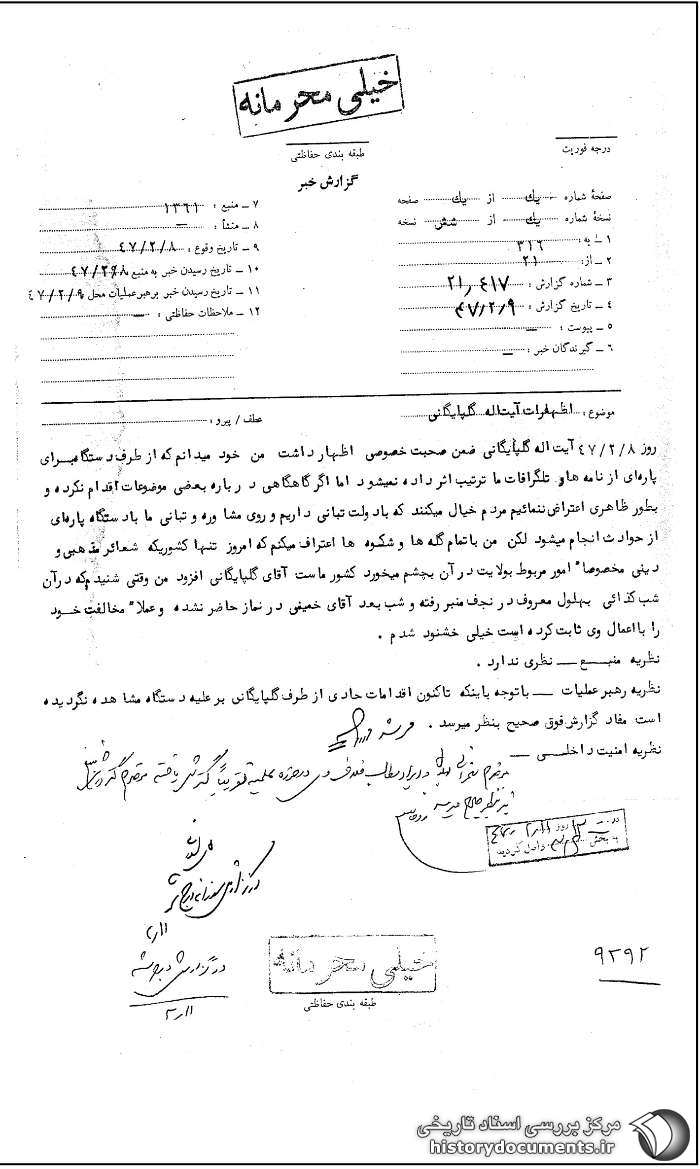 خیلی محرمانه
طبقه بندی حفاظتی
درجه فوریت
گزارش خبر
صفحهٔ شماره یك از یك صفحه
نسخهٔ شماره یك از شش نسخه
۱ ـ به : ۳۱۶
۲ ـ از: ۲۱
۳ ـ شماره گزارش : ۲۱٫۴۱۷
۴ ـ تاریخ گزارش : ۴۷/۲/۹
۵ ـ پیوست : ــ
۶ ـ گیرندگان خبر : ــ
۷ ـ منبع : ۱۳۶۱
۸ ـ منشأ : ــ
۹ ـ تاریخ وقوع : ۴۷/۲/۸
۱۰ ـ تاریخ رسیدن خبر به منبع : ۴۷/۲/۸
۱۱ ـ تاریخ رسیدن خبر برهبر عملیات محل : ۴۷/۲/۹
۱۲ ـ ملاحظات حفاظتی : ــ
موضوع : اظهارات آیت اله گلپایگانی
عطف / پیرو :
روز ۴۷/۲/۸ آیت اله گلپایگانی ضمن صحبت خصوصی اظهار داشت من خود میدانم که از طرف دستگاه برای
پاره‌ای از نامه ها و تلگرافات ما ترتیب اثر داده نمیشود اما اگر گاهگاهی در باره بعضی موضوعات اقدام نکرده و
بطور ظاهری اعتراض ننمائیم مردم خیال میکنند که با دولت تبانی داریم و روی مشاوره و تبانی ما با دستگاه پاره‌ای
از حوادث انجام میشود لکن من با تمام گله ها و شکوه ها اعتراف میکنم که امروز تنها کشوریکه شعائر مذهبی و
دینی مخصوصا" امور مربوط بولایت در آن بچشم میخورد کشور ماست آقای گلپایگانی افزود من وقتی شنیدم که در آن
شب کذائی بهلول معروف در نجف منبر رفته و شب بعد آقای خمینی در نماز حاضر نشده و عملا" مخالفت خود
را با اعمال وی ثابت کرده است خیلی خشنود شدم .
نظریه منبـع ــ نظری ندارد .
نظریه رهبر عملیات ــ با توجه باینکه تاکنون اقدامات حادی از طرف گلپایگانی بر علیه دستگاه مشاهده نگردیده
است مفاد گزارش فوق صحیح بنظر میرسد .
نظریه امنیت داخلی ــ
خیلی محرمانه
طبقه بندی حفاظتی
۹۲۹۲
مرکز بررسی اسناد تاریخی
historydocuments.ir